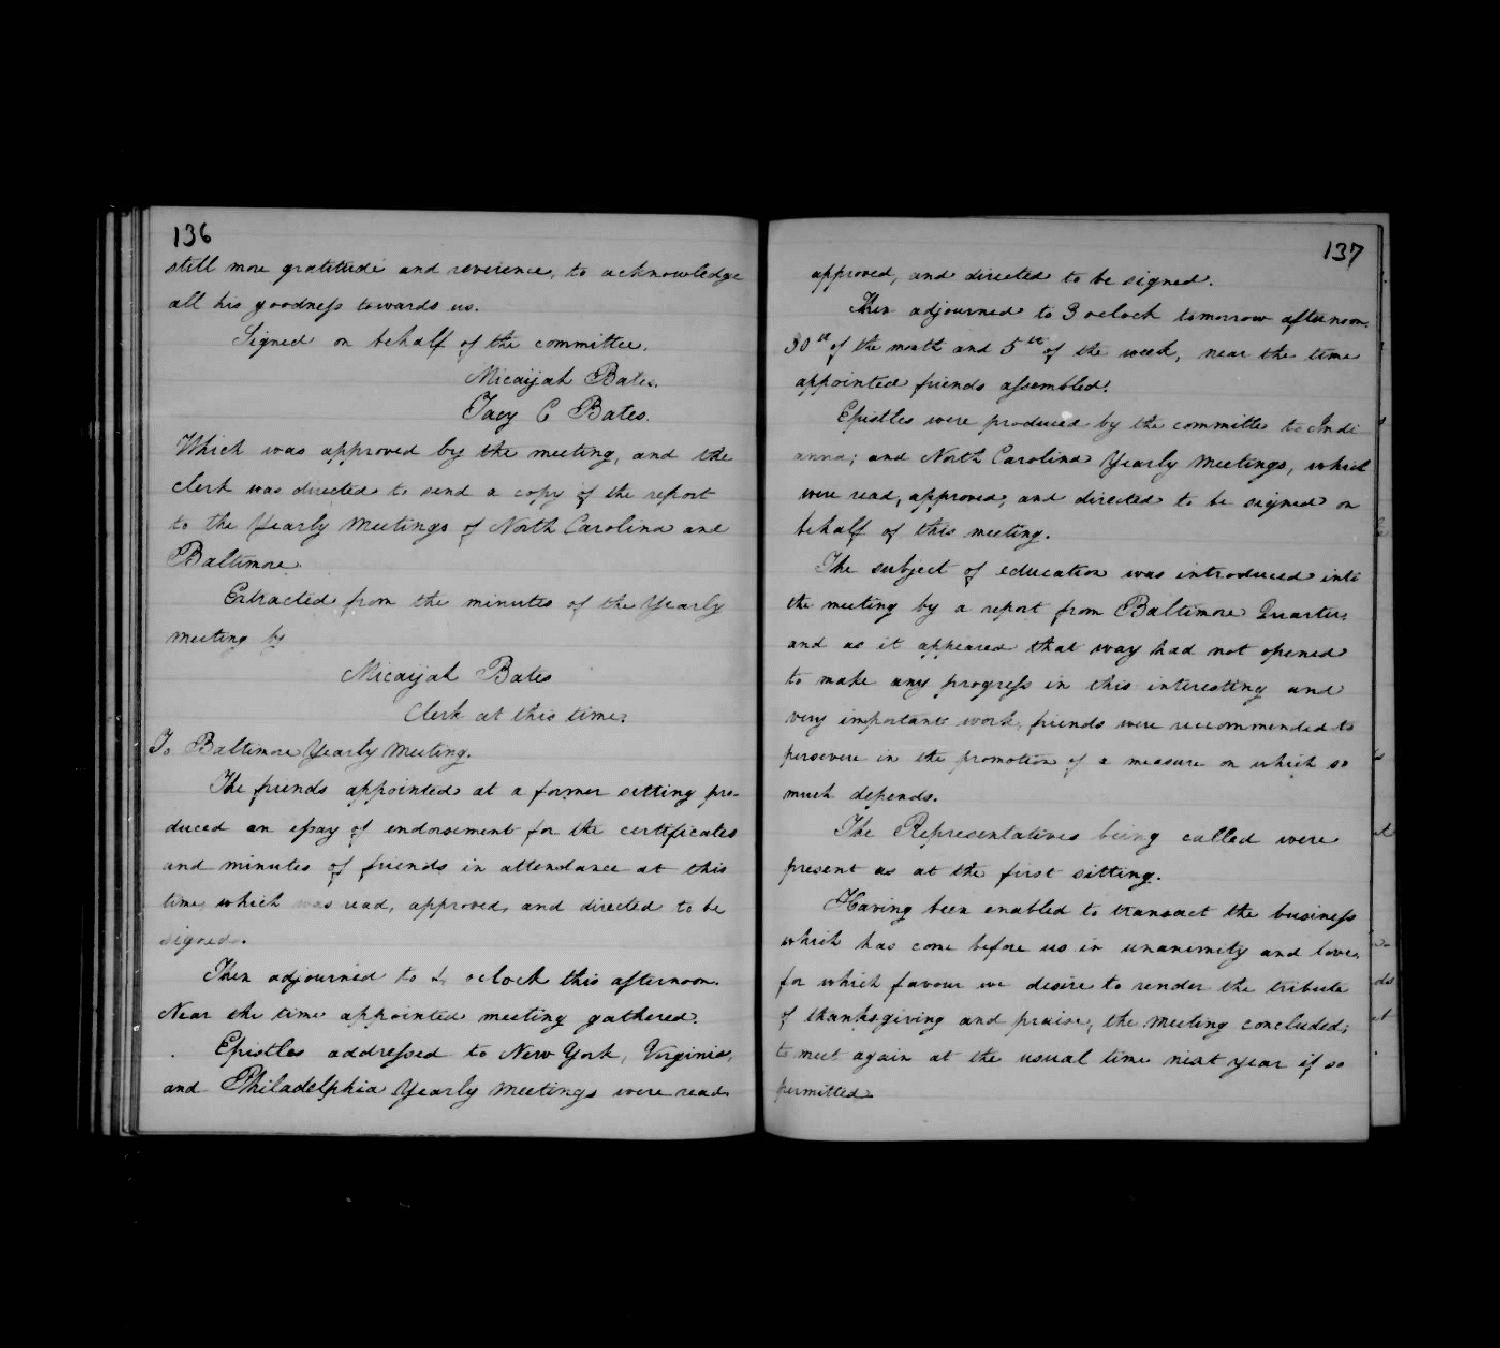 136
still more gratitude and reverence, to acknowledge
all his goodness towards us.
Signed on behalf of the committee.
Micaijah Bates.
Tacy C Bates.
Which was approved by the meeting, and the
clerk was directed to send a copy of the report
to the Yearly Meetings of North Carolina and
Baltimore.
Extracted from the minutes of the Yearly
meeting by
Micaijah Bates
Clerk at this time.
To Baltimore Yearly Meeting.
The friends appointed at a former sitting pro-
duced an essay of endorsement for the certificates
and minutes of friends in attendance at this
time, which was read, approved, and directed to be
signed.
Then adjourned to 4 oclock this afternoon.
Near the time appointed meeting gathered.
Epistles addressed to New York, Virginia,
and Philadelphia Yearly Meetings were read
137
approved, and directed to be signed.
Then adjourned to 3 oclock tomorrow afternoon.
30th of the month and 5th of the week, near the time
appointed friends assembled.
Epistles were produced by the committee to Indi
anna; and North Carolina Yearly Meetings, which
were read, approved, and directed to be signed on
behalf of this meeting.
The subject of education was introduced into
the meeting by a report from Baltimore Quarter,
and as it appeared that way had not opened
to make any progress in this interesting and
very important work, friends were recommended to
persevere in the promotion of a measure on which so
much depends.
The Representatives being called were
present as at the first sitting.
Having been enabled to transact the business
which has come before us in unanimety and love,
for which favour we desire to render the tribute
of thanksgiving and praise, the meeting concluded;
to meet again at the usual time next year if so
permitted.